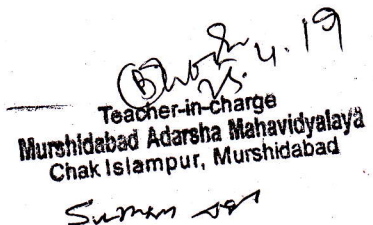 25.4.19
Teacher-in-charge
Murshidabad Adarsha Mahavidyalaya
Chak Islampur, Murshidabad
Suman